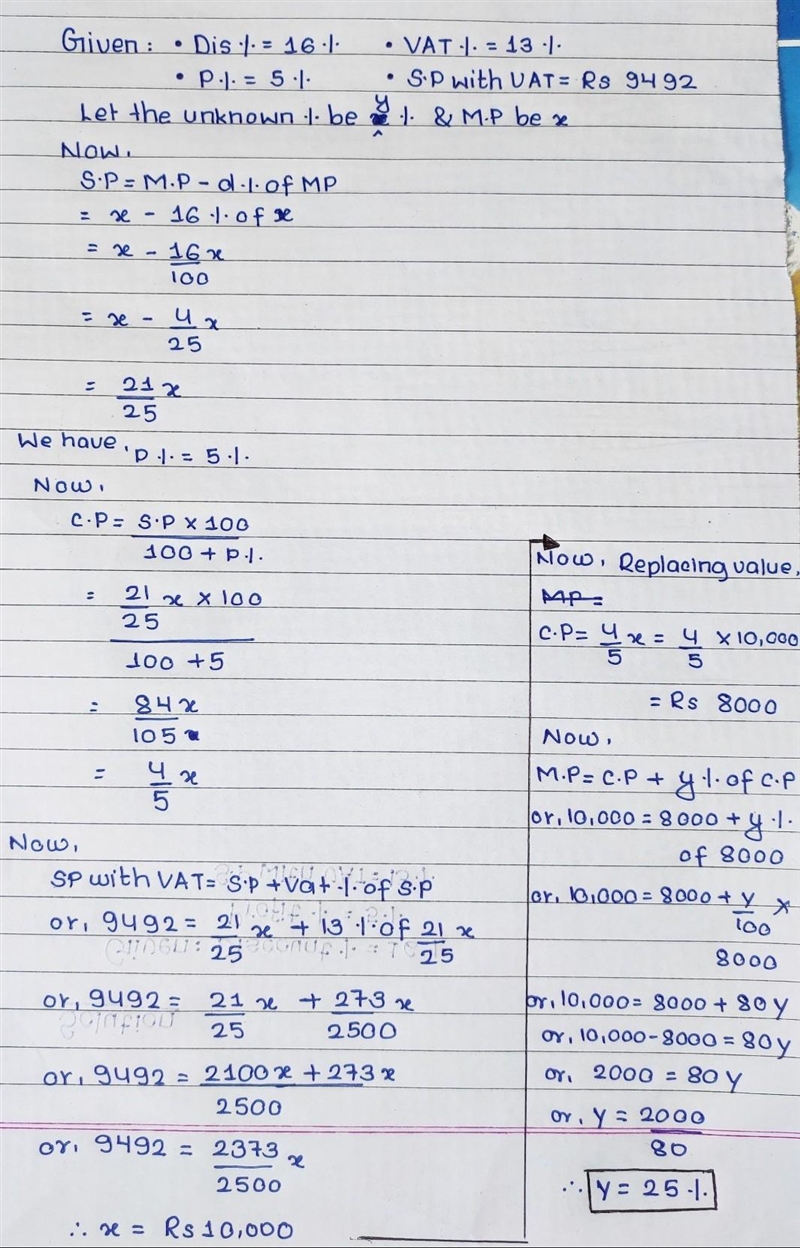 Given: • Dis % = 16 % • VAT % = 13 %
• P % = 5 % • S.P with VAT = Rs 9492
Let the unknown % be y % & M.P be x
Now,
S.P = M.P - d % of MP
= x - 16 % of x
= x - 16x/100
= x - 4/25 x
= 21/25 x
We have, p % = 5 %
Now,
C.P = S.P x 100 / 100 + P %
= 21/25 x x 100 / 100 + 5
= 84x/105
= 4/5 x
Now,
SP with VAT = S.P + Vat % of S.P
or, 9492 = 21/25 x + 13 % of 21/25 x
or, 9492 = 21/25 x + 273/2500 x
or, 9492 = 2100x + 273x / 2500
or, 9492 = 2373/2500 x
∴ x = Rs 10,000
Now, Replacing value,
MP =
C.P = 4/5 x = 4/5 x 10,000
= Rs 8000
Now,
M.P = C.P + y % of C.P
or, 10,000 = 8000 + y %
of 8000
or, 10,000 = 8000 + y/100 x
8000
or, 10,000 = 8000 + 80y
or, 10,000 - 8000 = 80y
or, 2000 = 80y
or, y = 2000/80
∴ y = 25 %